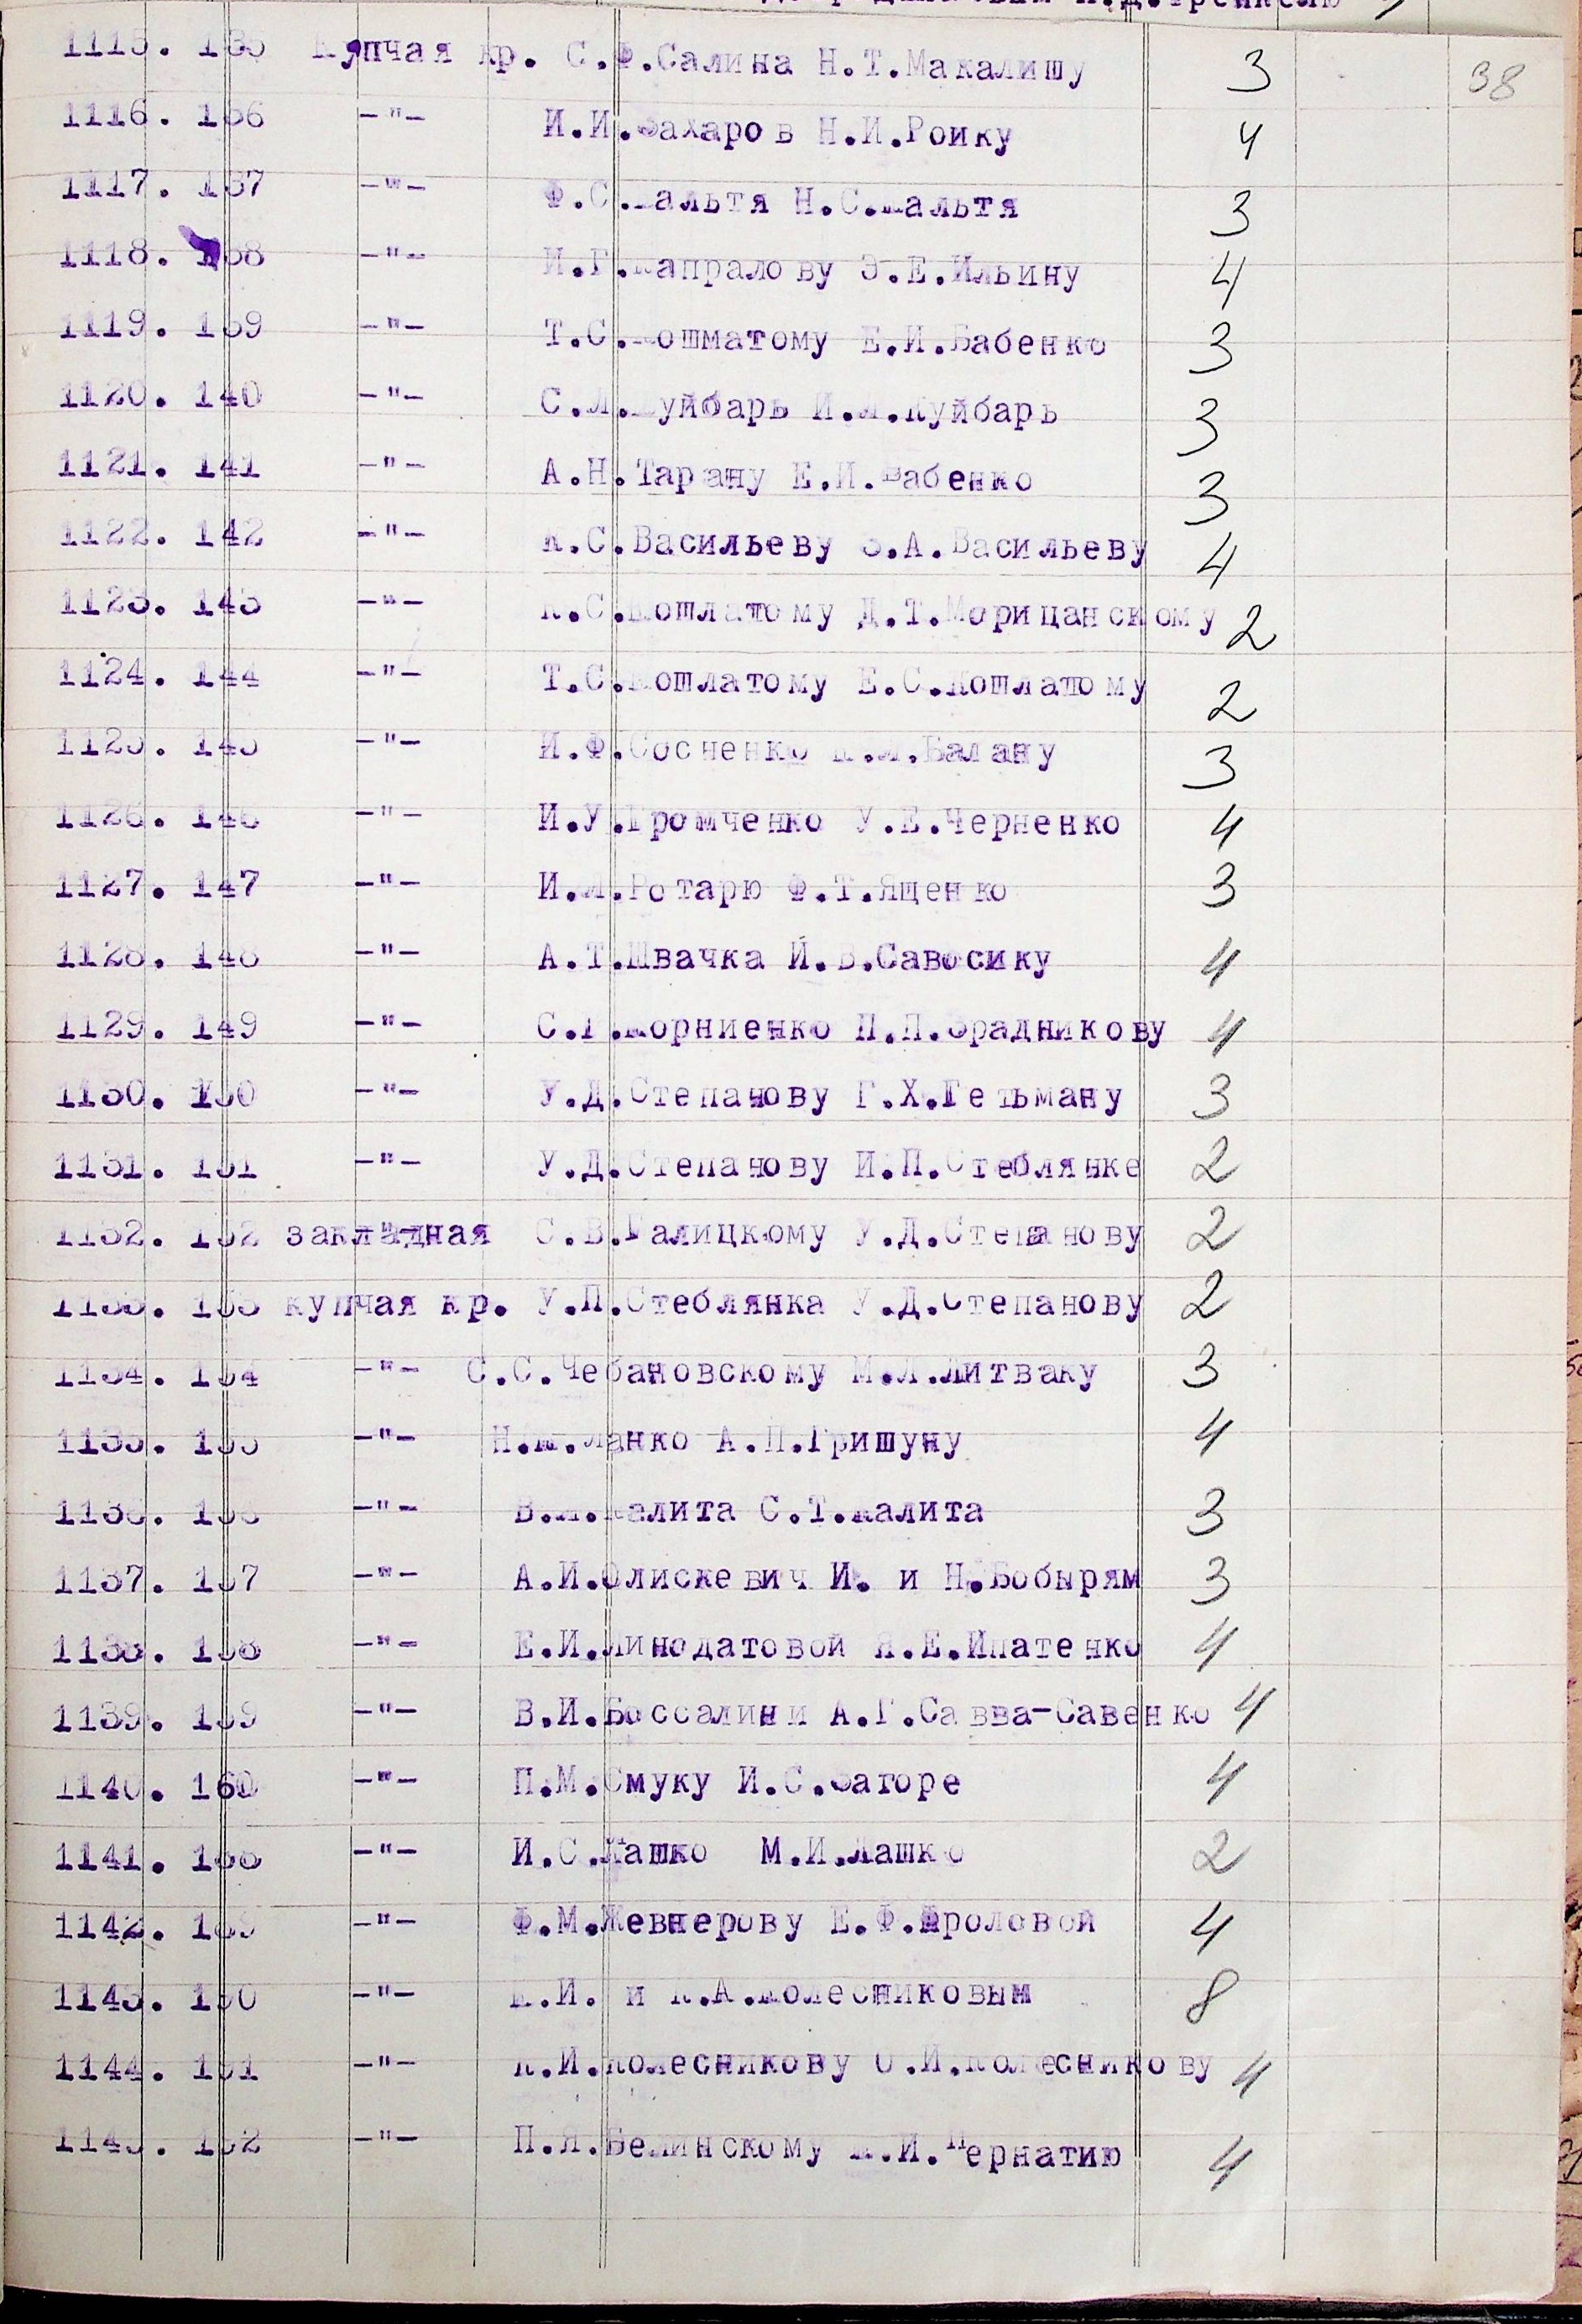 1115. 135 Купчая кр. С.Ф.Салина Н.Т.Макалишу 3 38
1116. 136 -"- И.И.Захаров Н.И.Роику 4
1117. 137 -"- Ф.С.Кальтя Н.С.Кальтя 3
1118. 138 -"- И.Г.Капралову Э.Е.Ильину 4
1119. 139 -"- Т.С.Кошматому Е.И.Бабенко 3
1120. 140 -"- С.Л.Куйбарь И.Л.Куйбарь 3
1121. 141 -"- А.Н.Тарану Е.И.Бабенко 3
1122. 142 -"- К.С.Васильеву З.А.Васильеву 4
1123. 143 -"- К.С.Кошлатому Д.Т.Морицанскому 2
1124. 144 -"- Т.С.Кошлатому Е.С.Кошлатому 2
1125. 145 -"- И.Ф.Сосненко Балану 3
1126. 146 -"- И.У.Громченко У.Е.Черненко 4
1127. 147 -"- Ротарю Ф.Т.Ященко 3
1128. 148 -"- А.Т.Швачка И.В.Савосику 4
1129. 149 -"- С.Г.Корниенко П.П.Зрадникову 4
1130. 150 -"- У.Д.Степанову Г.Х.Гетьману 3
1131. 151 -"- У.Д.Степанову И.П.Стеблянке 2
1132. 152 закладная С.В.Галицкому У.Д.Степанову 2
1133. 153 купчая кр. У.П.Стеблянка У.Д.Степанову 2
1134. 154 -"- С.С.Чебановскому М.Л.Литваку 3
1135. 155 -"- Ланко А.П.Гришуну 4
1136. 156 -"- Калита С.Т.Калита 3
1137. 157 -"- А.И.Олискевич И. и Н.Бобырям 3
1138. 158 -"- Е.И.Линодатовой Я.Е.Ипатенко 4
1139. 159 -"- В.И.Боссалини А.Г.Савва-Савенко 4
1140. 160 -"- П.М.Смуку И.С.Загоре 4
1141. -"- И.С.Лашко М.И.Лашко 2
1142. -"- Ф.М.Жевнерову Е.Ф.Фроловой 4
1143. -"- и К.А.Колесниковым 8
1144. -"- К.И.Колесникову О.И.Колесникову 4
1145. -"- П.Я.Белинскому Пернатию 4